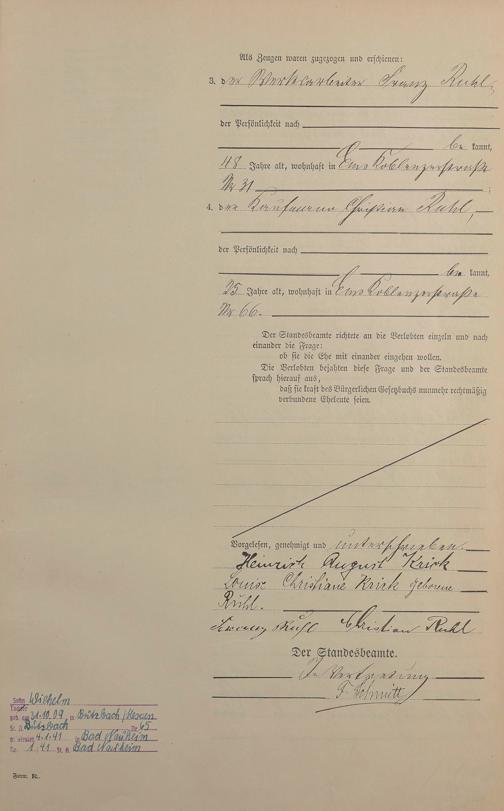 Als Zeugen waren zugezogen und erschienen:
3. der Werksarbeiter Franz Ruhl,
der Persönlichkeit nach
be kannt,
48 Jahre alt, wohnhaft in Ems Koblenzerstraße
Nr 31 ;
4. der Kaufmann Christian Ruhl,
der Persönlichkeit nach
be kannt,
25 Jahre alt, wohnhaft in Ems Koblenzerstraße
Nr 66.
Der Standesbeamte richtete an die Verlobten einzeln und nach
einander die Frage:
ob sie die Ehe mit einander eingehen wollen.
Die Verlobten bejahten diese Frage und der Standesbeamte
sprach hierauf aus,
daß sie kraft des Bürgerlichen Gesetzbuchs nunmehr rechtmäßig
verbundene Eheleute seien.
Vorgelesen, genehmigt und unterschrieben.
Heinrich August Krick
Louise Christiane Krick geborene
Ruhl.
Franz Ruhl Christian Ruhl
Der Standesbeamte.
In Vertretung
F. Schmitt
Sohn Wilhelm
Tochter
geb. am 31.10.09 in Butzbach/Hessen
St. A. Butzbach Nr 65
4.1.41 in Bad Nauheim
1.41 St. A. Bad Nauheim
Form. Kr.